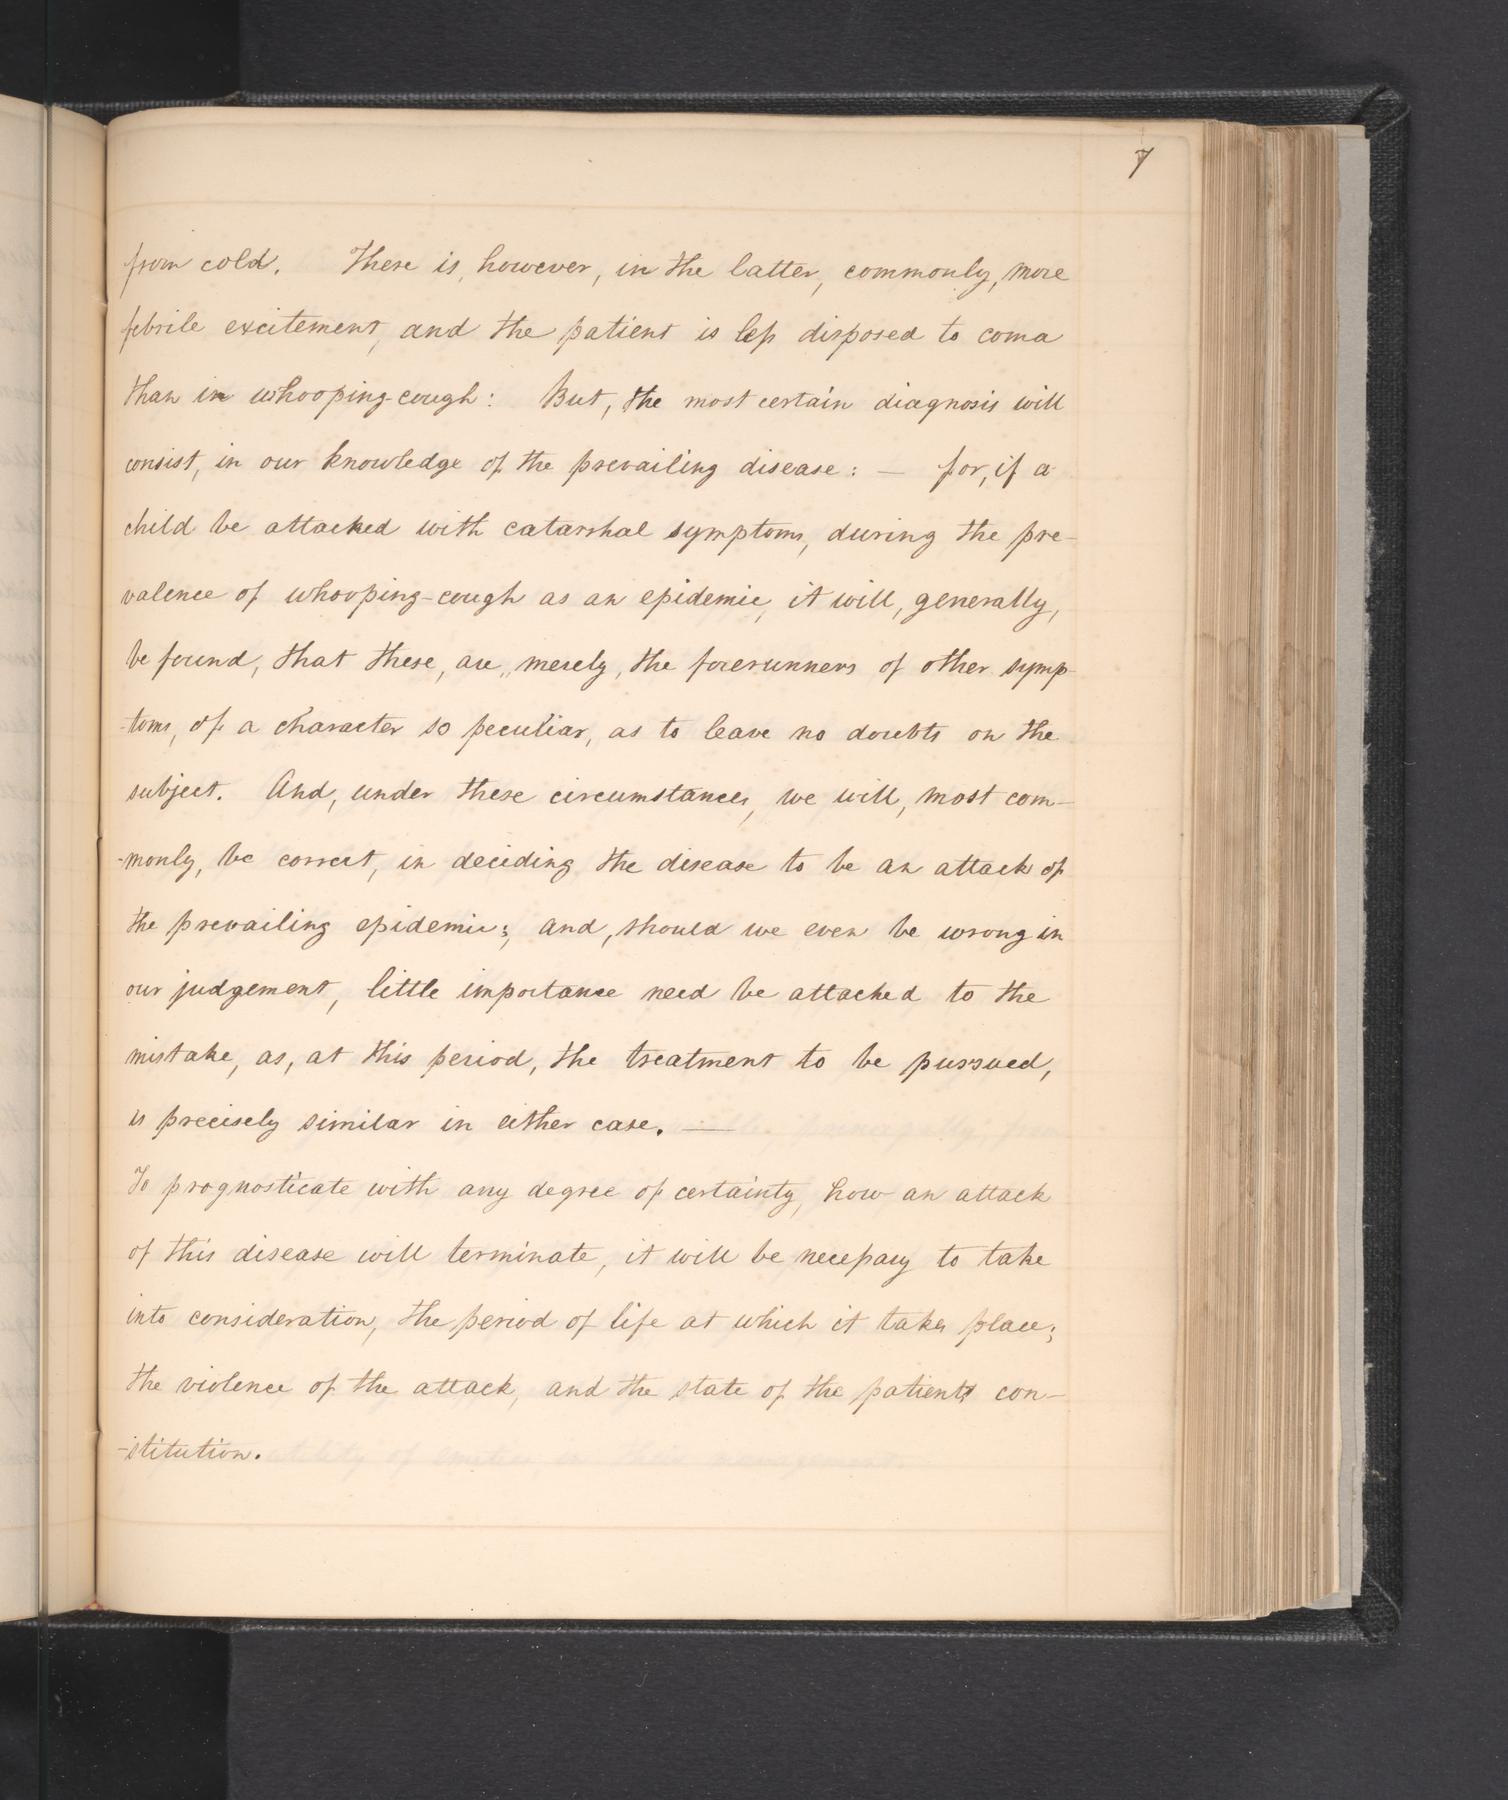 7
from cold. There is, however, in the latter, commonly, more
febrile excitement, and the patient is less disposed to coma
than in whooping-cough: But, the most certain diagnosis will
consist, in our knowledge of the prevailing disease: — for, if a
child be attacked with catarrhal symptoms, during the pre-
valence of whooping-cough as an epidemic, it will, generally,
be found, that these, are, merely, the forerunners of other symp-
-toms, of a character so peculiar, as to leave no doubts on the
subject. And, under these circumstances, we will, most com-
-monly, be correct, in deciding the disease to be an attack of
the prevailing epidemic; and, should we even be wrong in
our judgement, little importance need be attached to the
mistake, as, at this period, the treatment to be pursued,
is precisely similar in either case. —
To prognosticate with any degree of certainty, how an attack
of this disease will terminate, it will be necessary to take
into consideration, the period of life at which it takes place;
the violence of the attack, and the state of the patients con-
-stitution.